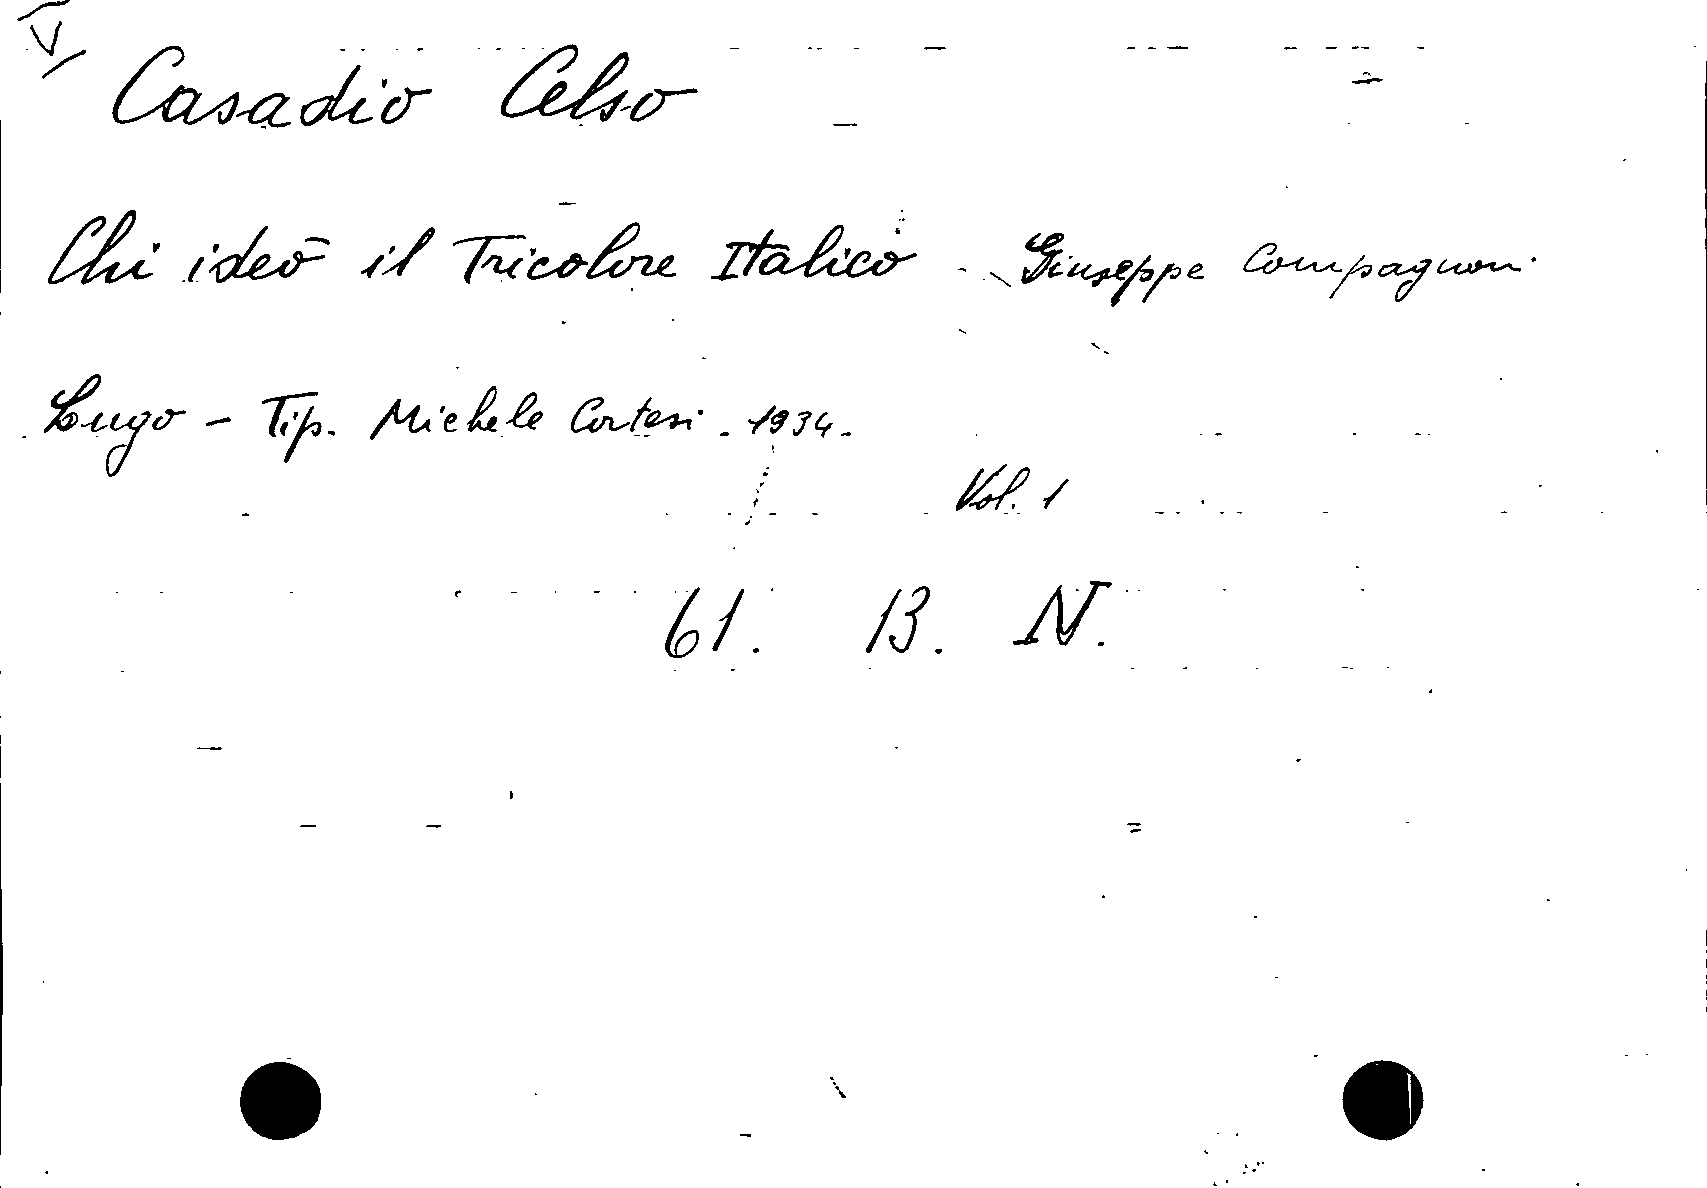 Casadio Celso
Chi ideò il Tricolore Italico - Giuseppe Compagnoni
Lugo - Tip. Michele Cortesi. 1934.
Vol. 1
61. B. N.